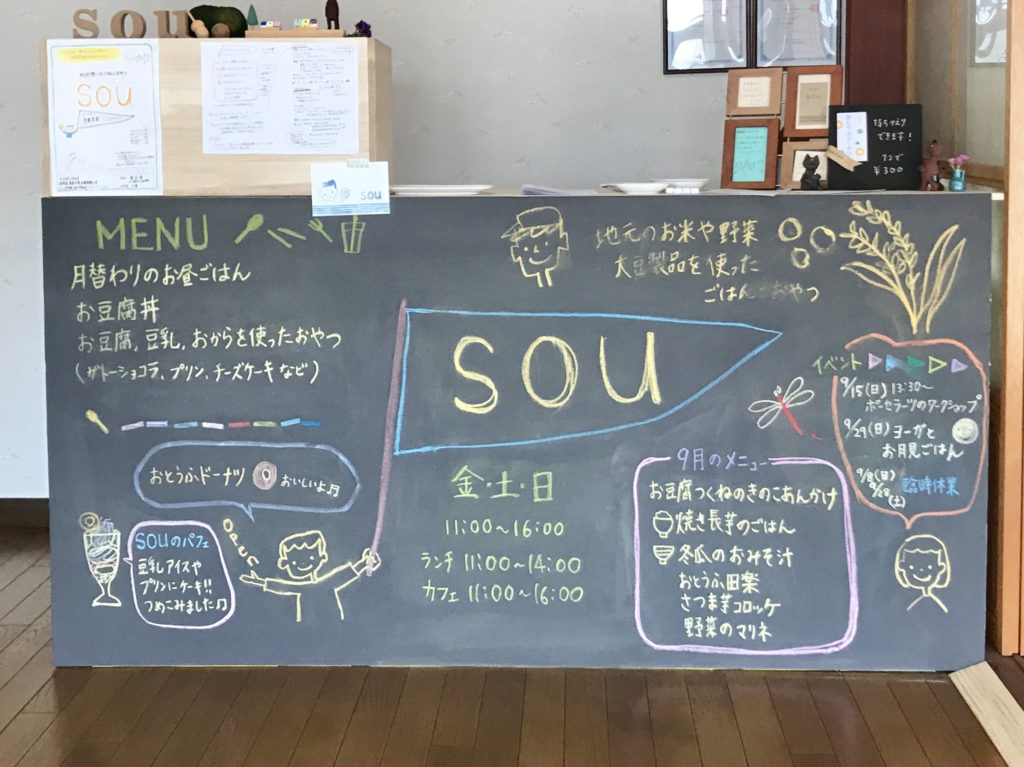 sou
sou
sou
持ちかえり
できます!
¥300
MENU
月替わりのお昼ごはん
お豆腐丼
お豆腐,豆乳,おからを使ったおやつ
(ガトーショコラ、プリン、チーズケーキなど)
地元のお米や野菜
大豆製品を使った
ごはんとおやつ
SOU
イベント
9/15(日)13:30〜
ポーセラーツのワークショップ
9/29(日)ヨーガと
お月見ごはん
9/8(日)
(土)
臨時休業
おとうふドーナツ
おいしいよ♫
SOUのパフェ
豆乳アイスや
プリンにケーキ!!
つめこみました♫
金・土・日
11:00〜16:00
ランチ 11:00〜14:00
カフェ 11:00〜16:00
9月のメニュー
お豆腐つくねのきのこあんかけ
焼き長芋のごはん
冬瓜のおみそ汁
おとうふ田楽
さつま芋コロッケ
野菜のマリネ